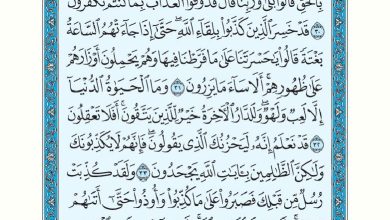 بِالْحَقِّ قَالُوا بَلَىٰ وَرَبِّنَا قَالَ فَذُوقُوا الْعَذَابَ بِمَا كُنتُمْ تَكْفُرُونَ
٣٠ قَدْ خَسِرَ الَّذِينَ كَذَّبُوا بِلِقَاءِ اللَّهِ حَتَّىٰ إِذَا جَاءَتْهُمُ السَّاعَةُ
بَغْتَةً قَالُوا يَٰحَسْرَتَنَا عَلَىٰ مَا فَرَّطْنَا فِيهَا وَهُمْ يَحْمِلُونَ أَوْزَارَهُمْ
عَلَىٰ ظُهُورِهِمْ أَلَا سَاءَ مَا يَزِرُونَ ٣١ وَمَا الْحَيَوٰةُ الدُّنْيَا
إِلَّا لَعِبٌ وَلَهْوٌ وَلَلدَّارُ الْآخِرَةُ خَيْرٌ لِّلَّذِينَ يَتَّقُونَ أَفَلَا تَعْقِلُونَ
٣٢ قَدْ نَعْلَمُ إِنَّهُ لَيَحْزُنُكَ الَّذِي يَقُولُونَ فَإِنَّهُمْ لَا يُكَذِّبُونَكَ
وَلَٰكِنَّ الظَّٰلِمِينَ بِـَٔايَٰتِ اللَّهِ يَجْحَدُونَ ٣٣ وَلَقَدْ كُذِّبَتْ
رُسُلٌ مِّن قَبْلِكَ فَصَبَرُوا عَلَىٰ مَا كُذِّبُوا وَأُوذُوا حَتَّىٰ أَتَىٰهُمْ